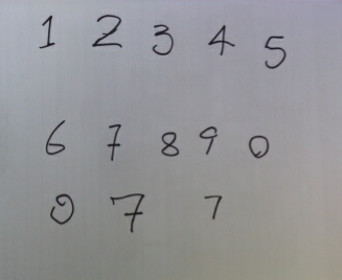 1 2 3 4 5
6 7 8 9 0
0 7 7